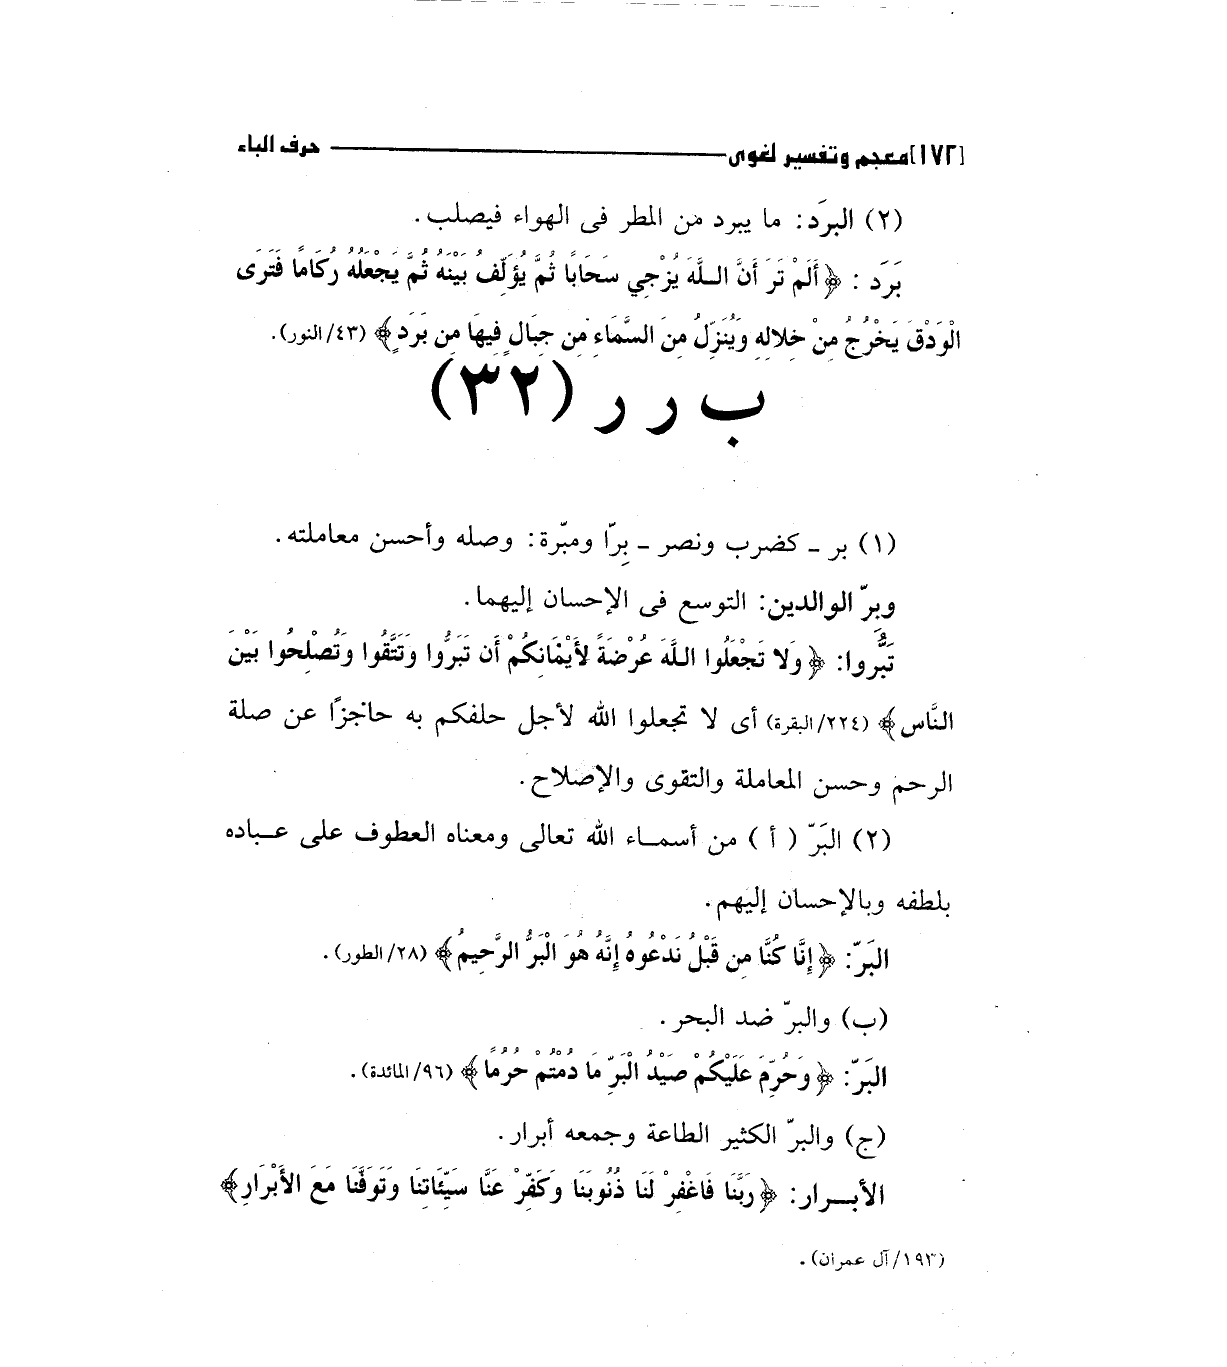 [١٧٢] معجم وتفسير لغوى حرف الباء
(٢) البرَد: ما يبرد من المطر فى الهواء فيصلب.
بَرَد : ﴿أَلَمْ تَرَ أَنَّ اللَّهَ يُزْجِي سَحَابًا ثُمَّ يُؤَلِّفُ بَيْنَهُ ثُمَّ يَجْعَلُهُ رُكَامًا فَتَرَى
الْوَدْقَ يَخْرُجُ مِنْ خِلالِهِ وَيُنَزِّلُ مِنَ السَّمَاءِ مِن جِبَالٍ فِيهَا مِن بَرَدٍ﴾ (٤٣/النور).
ب ر ر (٣٢)
(١) بر ـ كضرب ونصر ـ بِرّا ومبّرة: وصله وأحسن معاملته.
وبِرّ الوالدين: التوسع فى الإحسان إليهما.
تَبُّروا: ﴿وَلا تَجْعَلُوا اللَّهَ عُرْضَةً لأَيْمَانِكُمْ أَن تَبَرُّوا وَتَتَّقُوا وَتُصْلِحُوا بَيْنَ
النَّاس﴾ (٢٢٤/البقرة) أى لا تجعلوا الله لأجل حلفكم به حاجزًا عن صلة
الرحم وحسن المعاملة والتقوى والإصلاح.
(٢) البَرّ ( أ ) من أسماء الله تعالى ومعناه العطوف على عباده
بلطفه وبالإحسان إليهم.
البَرّ: ﴿إِنَّا كُنَّا مِن قَبْلُ نَدْعُوهُ إِنَّهُ هُوَ الْبَرُّ الرَّحِيمُ﴾ (٢٨/الطور).
(ب) والبرّ ضد البحر.
البَرّ: ﴿وَحُرِّمَ عَلَيْكُمْ صَيْدُ الْبَرِّ مَا دُمْتُمْ حُرُمًا﴾ (٩٦/المائدة).
(ج) والبرّ الكثير الطاعة وجمعه أبرار.
الأبرار: ﴿رَبَّنَا فَاغْفِرْ لَنَا ذُنُوبَنَا وَكَفِّرْ عَنَّا سَيِّئَاتِنَا وَتَوَفَّنَا مَعَ الأَبْرَارِ﴾
(١٩٣/آل عمران).